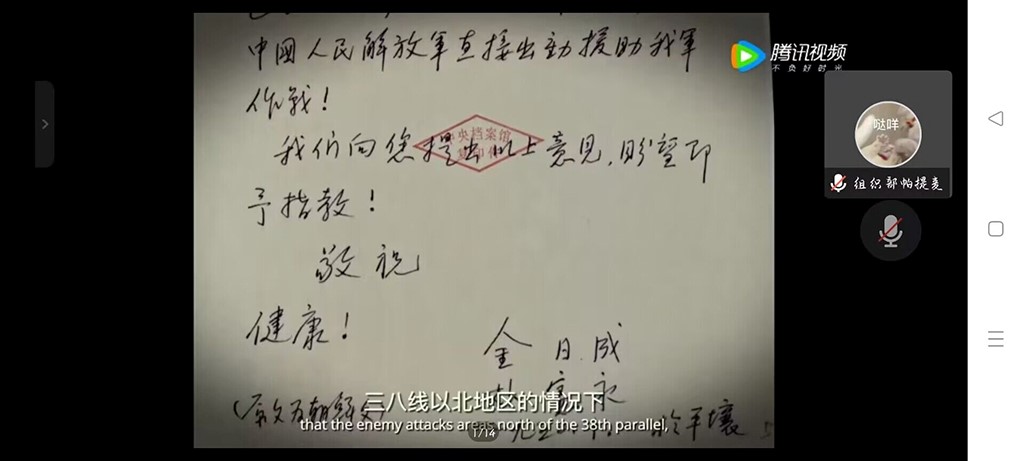 中國人民解放军直接出动援助我军
作战！
我们向您提出以上意见，盼望即
予指教！
敬祝
健康！
金日成
三八线以北地区的情况下
that the enemy attacks areas north of the 38th parallel,
1/14
于平壤
腾讯视频
不负好时光
哒咩
组织部帕提麦